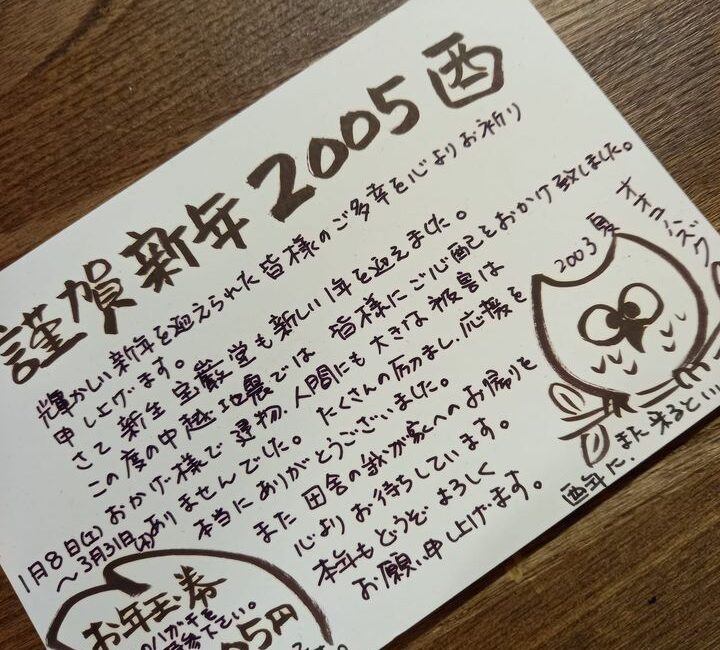 謹賀新年2005酉
輝かしい新年を迎えられた皆様のご多幸を心よりお祈り
申し上げます。
さて新生宝巌堂も新しい1年を迎えました。
この度の中越地震では皆様にご心配をおかけ致しました。
おかげ様で建物、人間にも大きな被害は
ありませんでした。たくさんの励まし、応援を
本当にありがとうございました。
また田舎の我が家へのお帰りを
心よりお待ちしています。
本年もどうぞよろしく
お願い申し上げます。
2003夏
オオコノハズク
酉年に、また来るとい
1月8日(土)
〜3月31日(木)
お年玉券
のハガキを
持参下さい。
05円